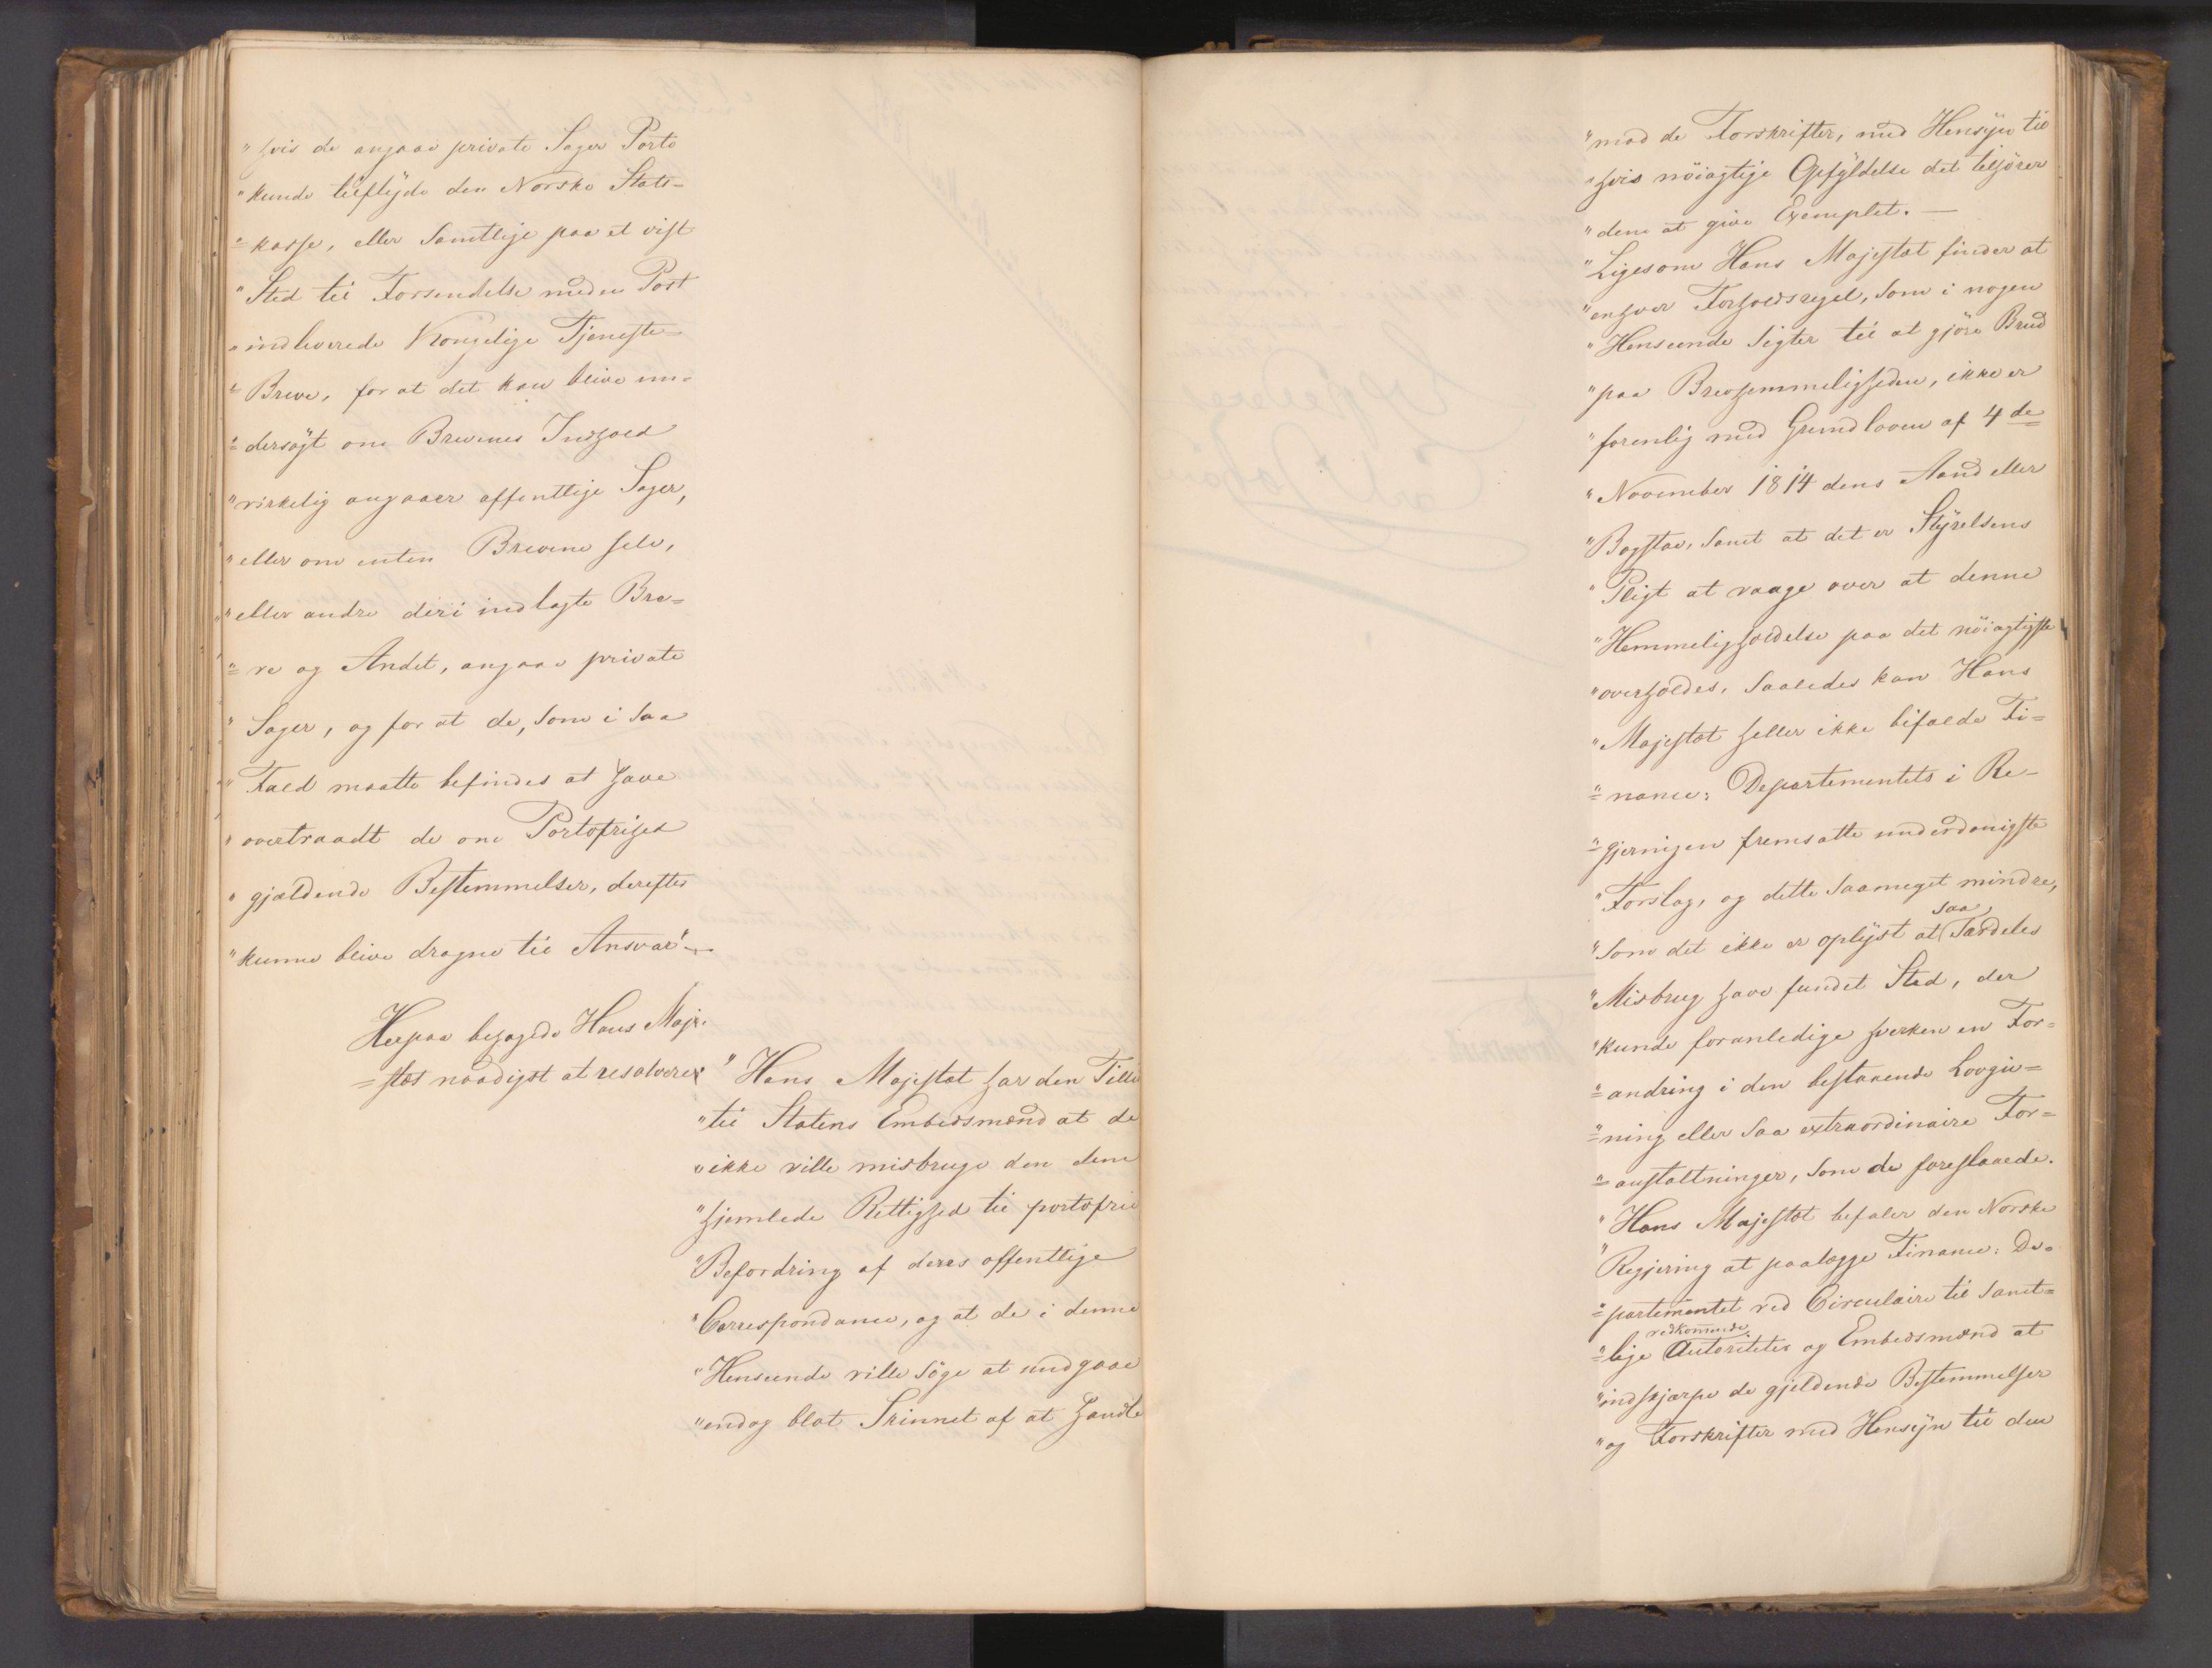 "hvis de angaae private Sager Porto
"kunde tilflyde den Norske Stats-
"=kasse, eller samtlige paa et vist
"Sted til Forsendelse med en Post
"indleverede Kongelige Tjeneste-
"=Breve, for at det kan blive un-
"=dersøgt om Brevenes Indhold
"virkelig angaaer offentlige Sager,
"eller om enten Brevene selv,
"eller andre deri indlagte Bre=
"=ve og Andet, angaae private
"Sager, og for at de, som i saa
"Fald maatte befindes at have
"overtraadt de om Portofrihed
"gjældende Bestemmelser, derefter
"kunne blive dragne til Ansvar".
Herpaa behagede Hans Maje-
=stæt naadigst at resolvere:
"Hans Majestæt har den Tillid
"til Statens Embedsmænd at de
"ikke ville misbruge den dem
"hjemlede Rettighed til portofrie
"Befordring af deres offentlige
"Correspondance, og at de i denne
"Henseende ville søge at undgaae
"endog blot Skinnet af at handle
"mod de Forskrifter, med Hensyn til
"hvis nöiagtige Opfyldelse det tilhører
"dem at give Exemplet. —
"Ligesom Hans Majestæt finder at
"enhver Forholdsregel, som i nogen
"Henseende sigter til at gjöre Brud
"paa Brevhemmeligheden, ikke er
"forenlig med Grundloven af 4de
"November 1814 dens Aand eller
"Bogstav, samt at det er Styrelsens
"Pligt at vaage over at denne
"Hemmeligholdelse paa det nöiagtigste
"overholdes, saaledes kan Hans
"Majestæt heller ikke bifalde Fi=
"=nance: Departementets i Re-
"=gjeringen fremsatte underdanigste
"Forslag, og dette saameget mindre,
"som det ikke er oplyst at saa Særdeles
"Misbrug have fundet Sted, der
"kunde foranledige hverken en For=
"=andring i den bestaaende Lovgiv=
"=ning eller saa extraordinaire For=
"=anstaltninger, som de foreslaaede.
"Hans Majestæt befaler den Norske
"Regjering at paalægge Finance: De=
"=partementet ved Circulaire til samt=
"=lige vedkommende Autoriteter og Embedsmænd at
"indskjærpe de gjeldende Bestemmelser
"og Forskrifter med Hensyn til den